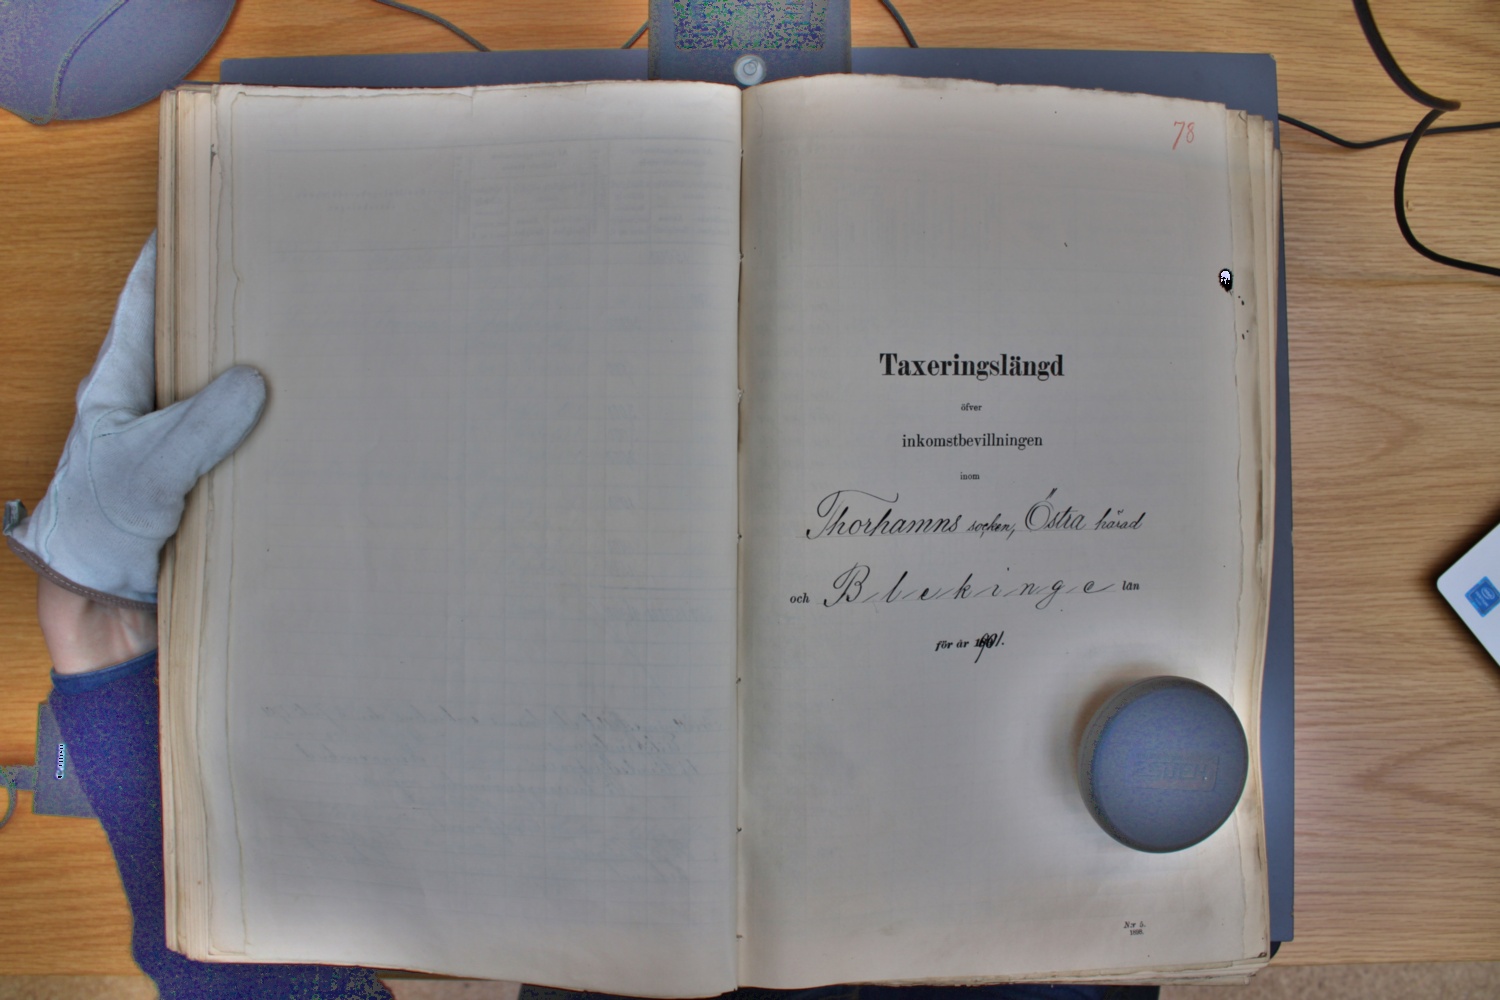 78
Taxeringslängd
öfver
inkomstbevillningen
inom
Thorhamns socken, Östra härad
och Blekinge län
för år 1901.
N:r 5.
1898.